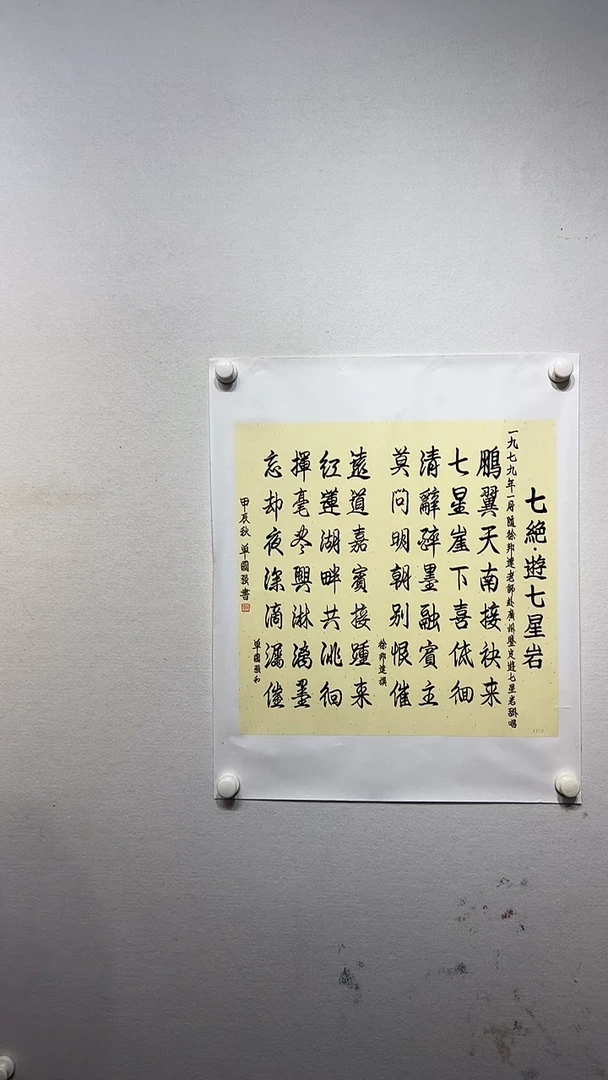 七絕·遊七星岩
一九七九年 月隨徐邦達老師赴廣州鑒定遊七星岩酬唱
鵬翼天南接袂来
七星崖下喜低徊
清辭醉墨融賓主
莫问明朝别恨催
徐邦達撰
遠道嘉賓接踵来
红蓮湖畔共 徊
揮毫 興淋漓墨
忘却夜深滴漏催
單國强和
甲辰秋 單國强書